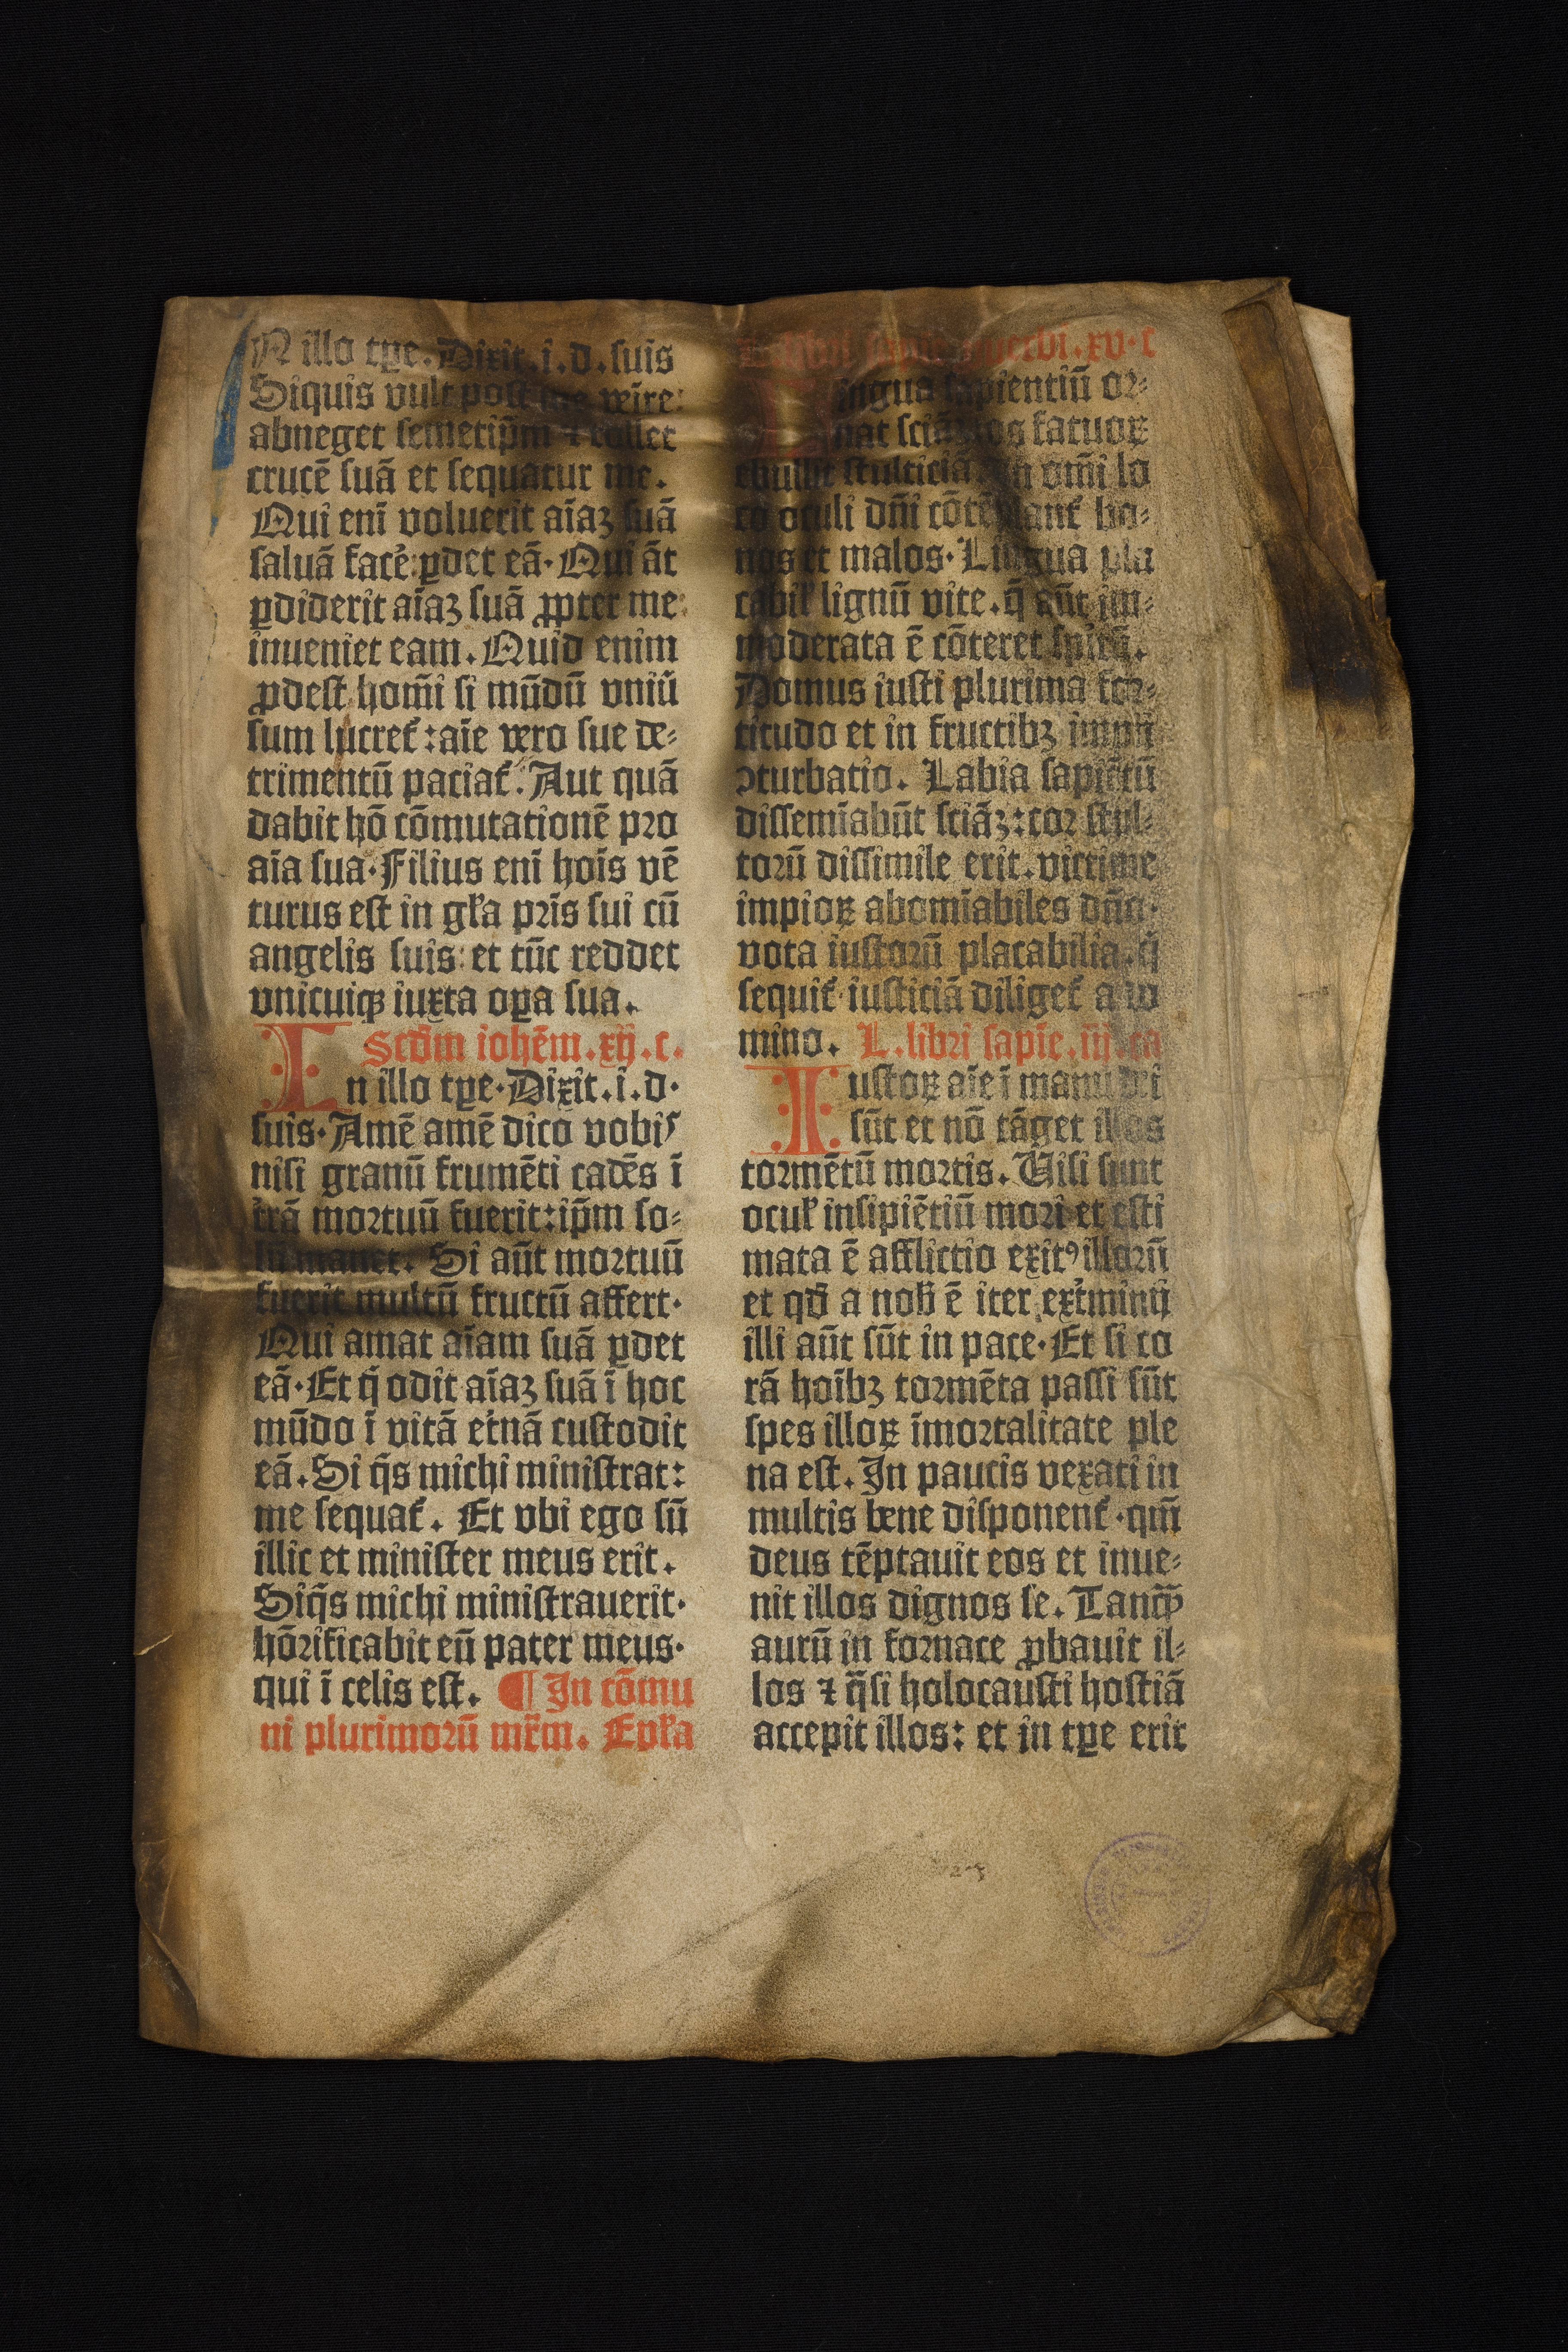 N illo tꝑe. Dixit. i. d. suis
Siquis vult post me veire:
abneget semetip̄m ⁊ tollet
crucē suā et sequatur me.
Qui enī voluerit aīaꝫ suā
saluā facē: ꝑdet eā. Qui āt
ꝑdiderit aīaꝫ suā ꝓpter me:
inueniet eam. Quid enim
ꝓdest hom̄i si mūdū vniū
sum lucret̉: aīe vero sue de⸗
trimentū paciat̉. Aut quā
dabit hō cōmutationē pro
aīa sua. Filius enī hoīs vē
turus est in gl̓a pr̄is sui cū
angelis suis: et tūc reddet
vnicuiqꝫ iuxta oꝑa sua.
Scd̄m iohēm. xij. c.
In illo tꝑe. Dixit. i. d.
suis. Amē amē dico vobis
nisi granū frumēti cadēs ī
t̓rā mortuū fuerit: ip̄m so⸗
lū manet. Si aūt mortuū
fuerit multū fructū affert.
Qui amat aīam suā ꝑdet
eā. Et q̄ odit aīaꝫ suā ī hoc
mūdo ī vitā et̓nā custodit
eā. Si q̄s michi ministrat:
me sequat̉. Et vbi ego sū
illic et minister meus erit.
Siq̄s michi ministrauerit.
hōrificabit eū pater meus.
qui ī celis est. ¶ In cōmu
ni plurimorū mr̄m. Epl̓a
ꝓuerbi. xv. c
Lingua sapientiū or⸗
nat sciā: os fatuoꝝ
ebullit stulticiā. In om̄i lo
co oculi dn̄i cōtēplant̉ bo⸗
nos et malos. Lingua pla
cabil̓ lignū vite. q̄ aūt im⸗
moderata ē cōteret spir̄ū.
Domus iusti plurima for⸗
titudo et in fructibꝫ impij
ↄturbatio. Labia sapiētū
dissemīabūt sciāꝫ: cor stul⸗
torū dissimile erit. victime
impioꝝ abomīabiles dn̄o.
vota iustorū placabilia. q̄
sequit̉ iusticiā diliget̉ a do
mino. L. libri sapīe. iij. ca
Iustoꝝ aīe ī manu dei
sūt et nō tāget illos
tormētū mortis. Uisi sunt
ocul̓ insipiētiū mori et esti
mata ē afflictio exitꝰ illorū
et qd̄ a nob̄ ē iter ext̓minij
illi aūt sūt in pace. Et si co
rā hoībꝫ tormēta passi sūt
spes illoꝝ īmortalitate ple
na est. In paucis vexati in
multis bene disponent̉. qm̄
deus tēptauit eos et inue⸗
nit illos dignos se. Tanqꝫ̄
aurū in fornace ꝓbauit il⸗
los ⁊ q̄si holocausti hostiā
accepit illos: et in tꝑe erit